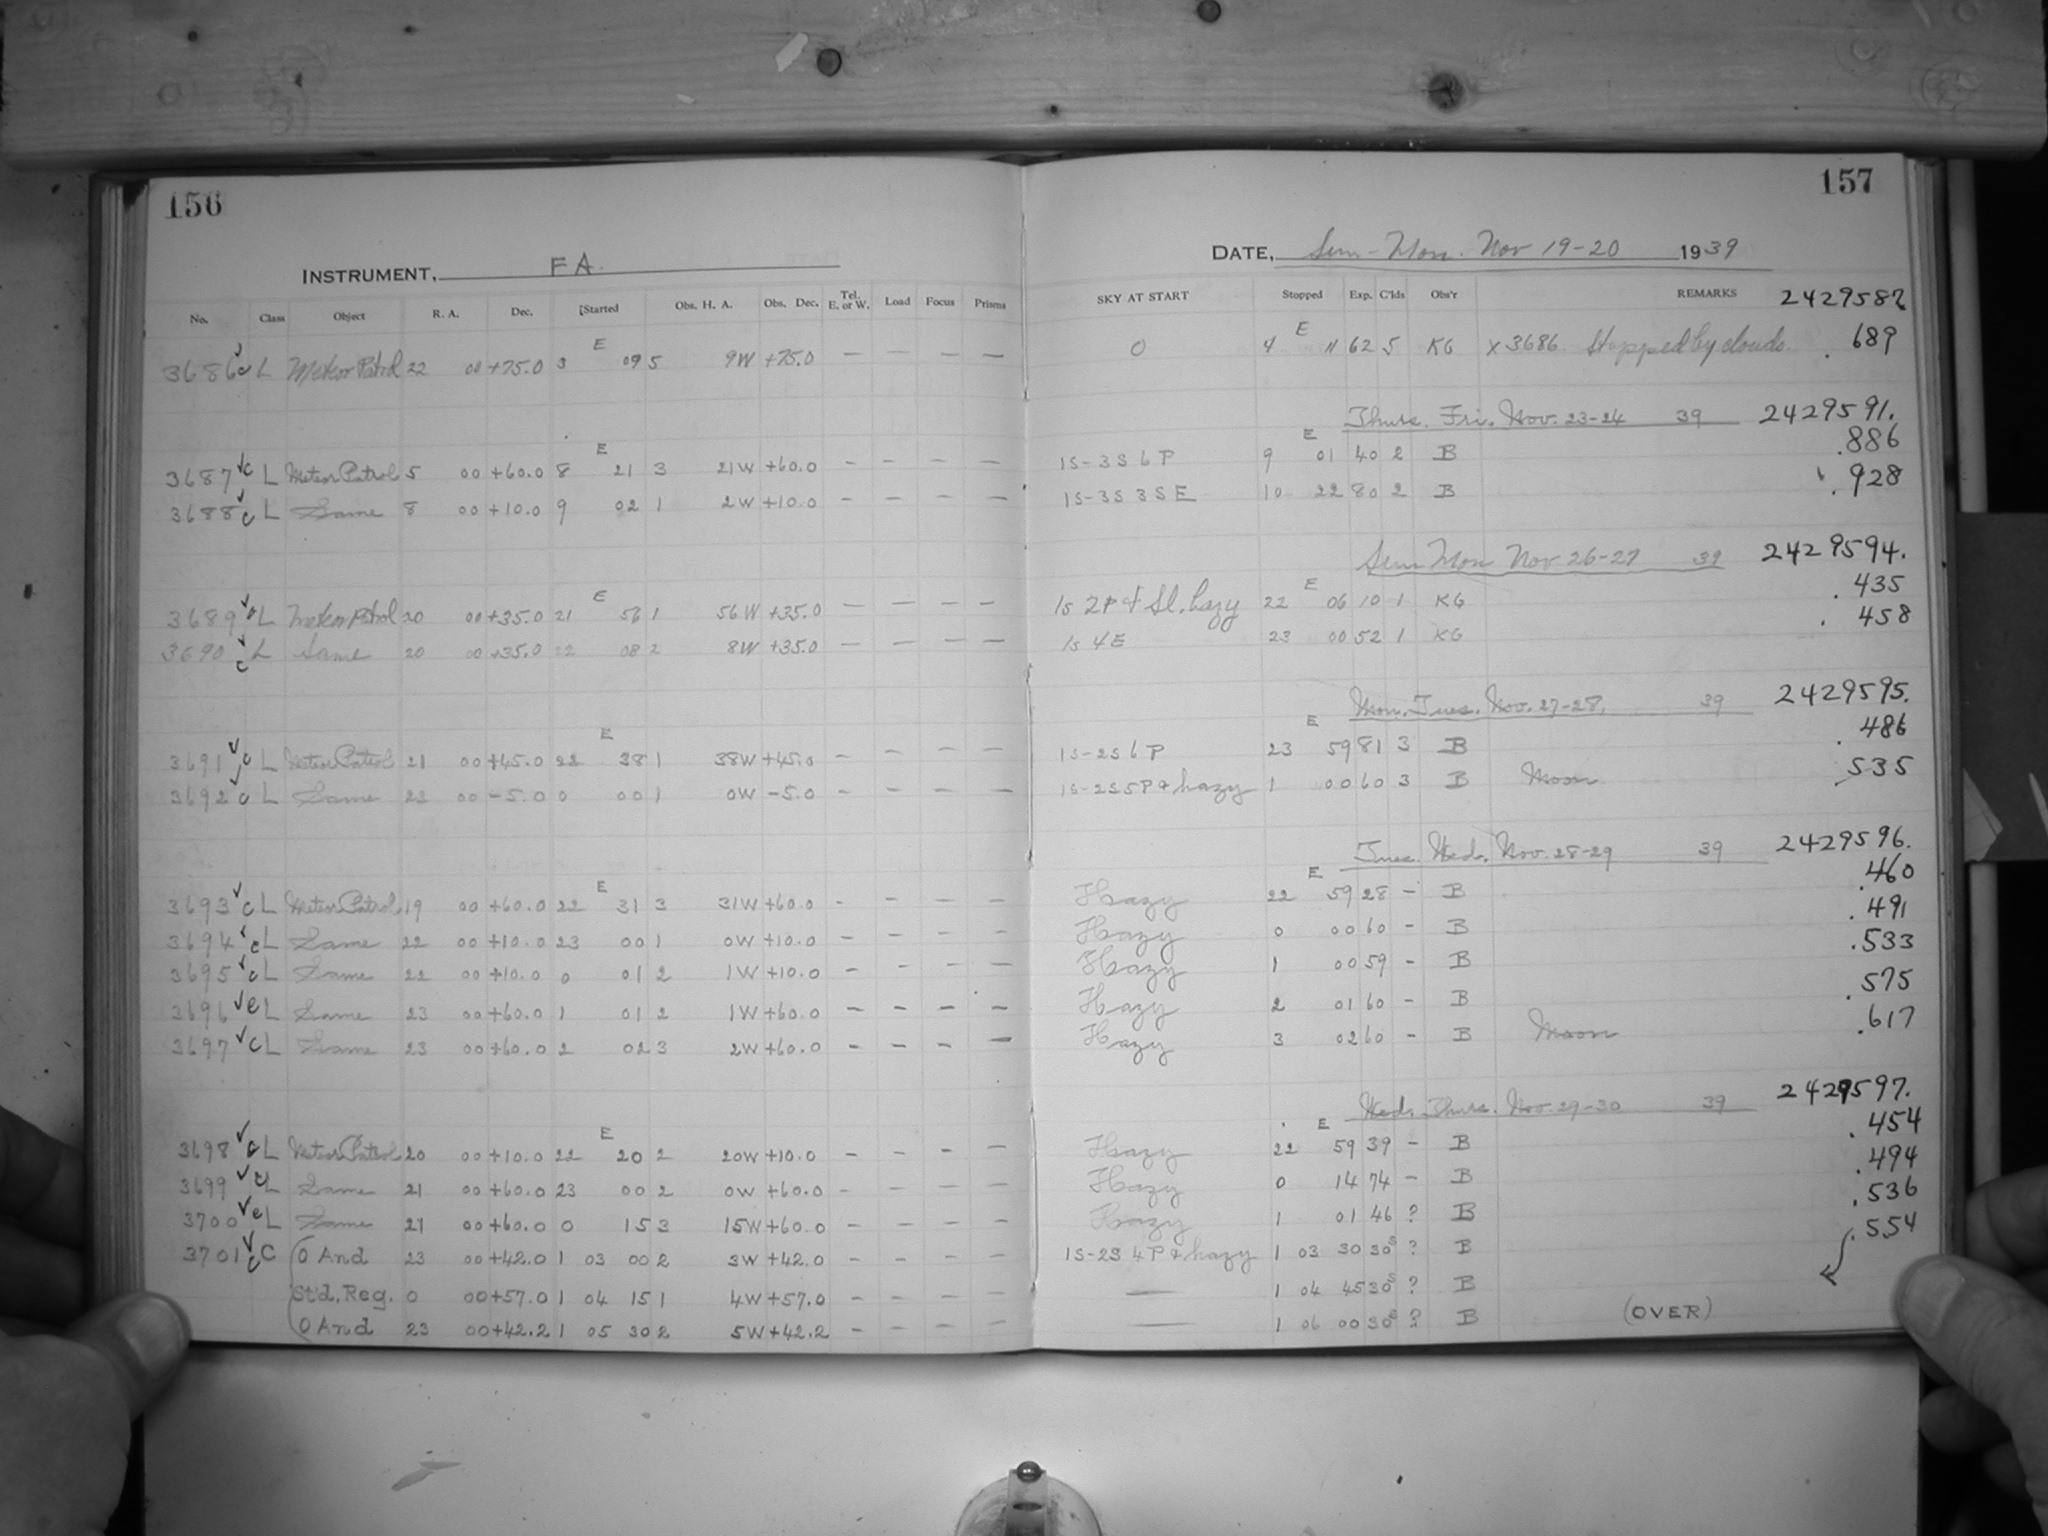 156
157
INSTRUMENT, FA.
DATE, Sun-Mon. Nov 19-20 1939
No. Class Object R. A. Dec. Started Obs. H. A. Obs. Dec. Tel. E. or W. Load Focus Prisms SKY AT START Stopped Exp. C'lds Obs'r REMARKS 2429587
3686 c L Meteor Patrol 22 00 +75.0 3 E 09 5 9W +75.0 — — — — 0 4 E 11 62 5 KG x 3686 Stopped by clouds. .689
Thurs. Fri. Nov. 23-24 39 2429591.
3687 c L Meteor Patrol 5 00 +60.0 8 E 21 3 21W +60.0 — — — — 1S-3S 6P 9 E 01 40 2 B .886
3688 c L Same 8 00 +10.0 9 02 1 2W +10.0 — — — — 1S-3S 3SE 10 22 80 2 B .928
Sun Mon Nov 26-27 39 2429594.
3689 c L Meteor Patrol 20 00 +35.0 21 E 56 1 56W +35.0 — — — — 1s 2P & Sl. hazy 22 E 06 10 1 KG .435
3690 c L Same 20 00 +35.0 22 08 2 8W +35.0 — — — — 1s 4E 23 00 52 1 KG .458
Mon. Tues. Nov. 27-28. 39 2429595.
3691 c L Meteor Patrol 21 00 +45.0 22 E 38 1 38W +45.0 — — — — 1S-2S 6P 23 E 59 81 3 B .486
3692 c L Same 23 00 -5.0 0 00 1 0W -5.0 — — — — 1S-2S 5P & hazy 1 00 60 3 B Moon .535
Tues. Wed. Nov. 28-29 39 2429596.
3693 c L Meteor Patrol 19 00 +60.0 22 E 31 3 31W +60.0 - - - - Hazy 22 E 59 28 - B .460
3694 c L Same 22 00 +10.0 23 00 1 0W +10.0 - - - - Hazy 0 00 60 - B .491
3695 c L Same 22 00 +10.0 0 01 2 1W +10.0 - - - - Hazy 1 00 59 - B .533
3696 c L Same 23 00 +60.0 1 01 2 1W +60.0 - - - - Hazy 2 01 60 - B .575
3697 c L Same 23 00 +60.0 2 02 3 2W +60.0 - - - - Hazy 3 02 60 - B Moon .617
Wed. Thurs. Nov. 29-30 39 2429597.
3698 c L Meteor Patrol 20 00 +10.0 22 E 20 2 20W +10.0 - - - - Hazy 22 E 59 39 - B .454
3699 c L Same 21 00 +60.0 23 00 2 0W +60.0 - - - - Hazy 0 14 74 - B .494
3700 c L Same 21 00 +60.0 0 15 3 15W +60.0 - - - - Hazy 1 01 46 ? B .536
3701 c C (O And 23 00 +42.0 1 03 00 2 3W +42.0 - - - - 1S-2S 4P & hazy 1 03 30 30s ? B .554
St'd. Reg. 0 00 +57.0 1 04 15 1 4W +57.0 - - - - — 1 04 45 30s ? B
(O And 23 00 +42.2 1 05 30 2 5W +42.2 - - - - — 1 06 00 30s ? B (OVER)